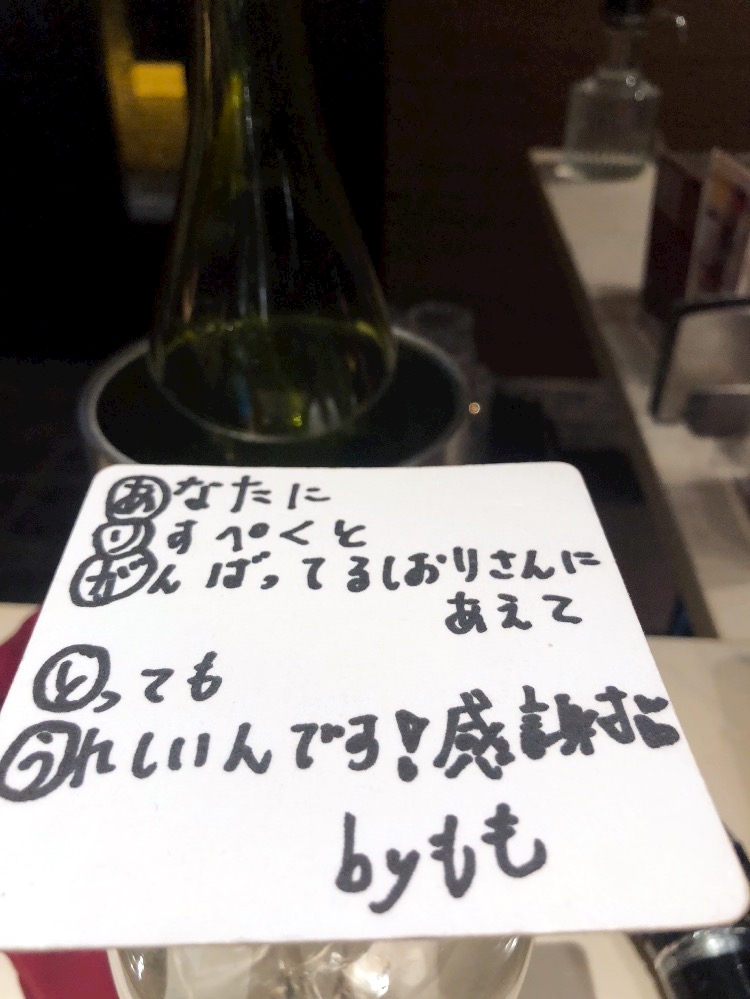 あなたに
りすぺくと
がんばってるしおりさんに
あえて
とっても
うれしいんです!感謝
byもも